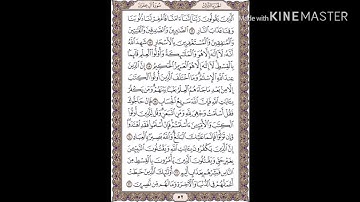 الجزء الثالث سورة آل عمران
Made with KINEMASTER
الَّذِينَ يَقُولُونَ رَبَّنَا إِنَّنَا ءَامَنَّا فَاغْفِرْ لَنَا ذُنُوبَنَا
وَقِنَا عَذَابَ النَّارِ ١٦ الصَّٰبِرِينَ وَالصَّٰدِقِينَ وَالْقَٰنِتِينَ
وَالْمُنفِقِينَ وَالْمُسْتَغْفِرِينَ بِالْأَسْحَارِ ١٧ شَهِدَ اللَّهُ
أَنَّهُ لَا إِلَٰهَ إِلَّا هُوَ وَالْمَلَٰئِكَةُ وَأُولُوا الْعِلْمِ قَائِمًا
بِالْقِسْطِ لَا إِلَٰهَ إِلَّا هُوَ الْعَزِيزُ الْحَكِيمُ ١٨ إِنَّ الدِّينَ
عِندَ اللَّهِ الْإِسْلَٰمُ وَمَا اخْتَلَفَ الَّذِينَ أُوتُوا
الْكِتَٰبَ إِلَّا مِن بَعْدِ مَا جَاءَهُمُ الْعِلْمُ بَغْيًا بَيْنَهُمْ وَمَن يَكْفُرْ
بِـَٔايَٰتِ اللَّهِ فَإِنَّ اللَّهَ سَرِيعُ الْحِسَابِ ١٩ فَإِنْ حَاجُّوكَ
فَقُلْ أَسْلَمْتُ وَجْهِيَ لِلَّهِ وَمَنِ اتَّبَعَنِ وَقُل لِّلَّذِينَ أُوتُوا
الْكِتَٰبَ وَالْأُمِّيِّينَ ءَأَسْلَمْتُمْ فَإِنْ أَسْلَمُوا فَقَدِ اهْتَدَوا
وَّإِن تَوَلَّوْا فَإِنَّمَا عَلَيْكَ الْبَلَٰغُ وَاللَّهُ بَصِيرٌ بِالْعِبَادِ ٢٠
إِنَّ الَّذِينَ يَكْفُرُونَ بِـَٔايَٰتِ اللَّهِ وَيَقْتُلُونَ النَّبِيِّينَ
بِغَيْرِ حَقٍّ وَيَقْتُلُونَ الَّذِينَ يَأْمُرُونَ بِالْقِسْطِ مِنَ
النَّاسِ فَبَشِّرْهُم بِعَذَابٍ أَلِيمٍ ٢١ أُولَٰئِكَ الَّذِينَ حَبِطَتْ
أَعْمَٰلُهُمْ فِي الدُّنْيَا وَالْءَاخِرَةِ وَمَا لَهُم مِّن نَّٰصِرِينَ ٢٢
٥٢